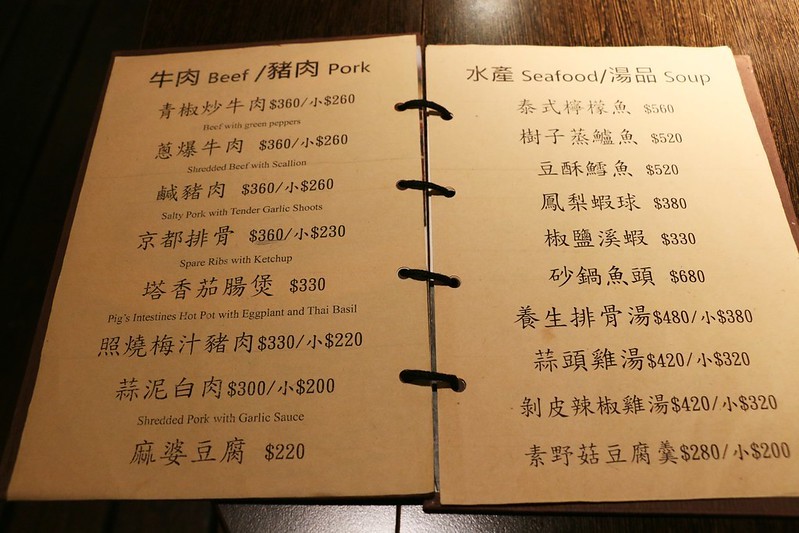 牛肉 Beef /豬肉 Pork
青椒炒牛肉$360/小$260
Beef with green peppers
蔥爆牛肉 $360/小$260
Shredded Beef with Scallion
鹹豬肉 $360/小$260
Salty Pork with Tender Garlic Shoots
京都排骨 $360/小$230
Spare Ribs with Ketchup
塔香茄腸煲 $330
Pig's Intestines Hot Pot with Eggplant and Thai Basil
照燒梅汁豬肉$330/小$220
蒜泥白肉$300/小$200
Shredded Pork with Garlic Sauce
麻婆豆腐 $220
水產 Seafood/湯品 Soup
泰式檸檬魚 $560
樹子蒸鱸魚 $520
豆酥鱈魚 $520
鳳梨蝦球 $380
椒鹽溪蝦 $330
砂鍋魚頭 $680
養生排骨湯$480/小$380
蒜頭雞湯$420/小$320
剝皮辣椒雞湯$420/小$320
素野菇豆腐羹$280/小$200